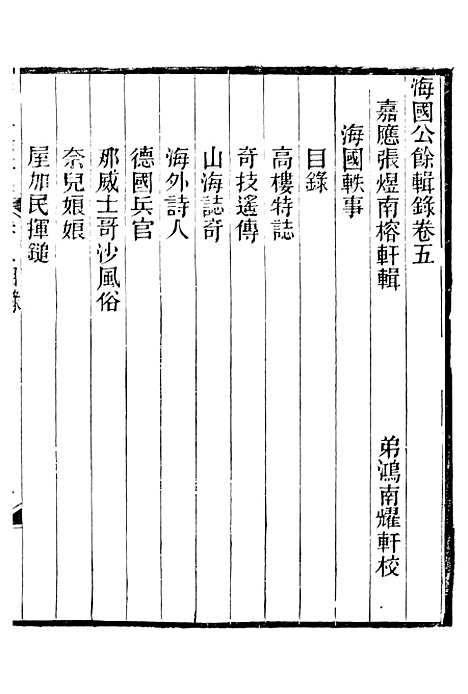 海國公餘輯錄卷五
嘉應張煜南榕軒輯　弟鴻南耀軒校
海國軼事
目錄
高樓特誌
奇技遙傳
山海誌奇
海外詩人
德國兵官
那威士哥沙風俗
奈兒娘娘
屋加民揮鎚